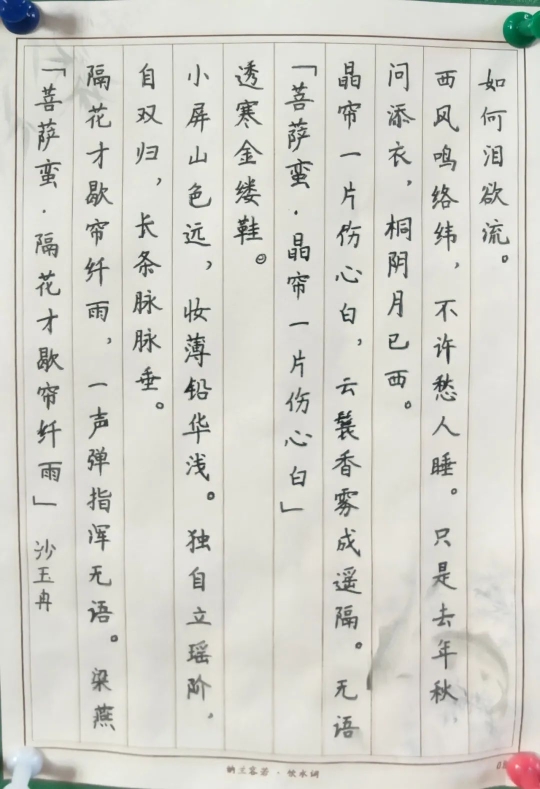 「菩萨蛮·隔花才歇帘纤雨」 沙玉冉
隔花才歇帘纤雨，一声弹指浑无语。梁燕
自双归，长条脉脉垂。
小屏山色远，妆薄铅华浅。独自立瑶阶，
透寒金缕鞋。
「菩萨蛮·晶帘一片伤心白」
晶帘一片伤心白，云鬟香雾成遥隔。无语
问添衣，桐阴月已西。
西风鸣络纬，不许愁人睡。只是去年秋
如何泪欲流。
纳兰容若·饮水词